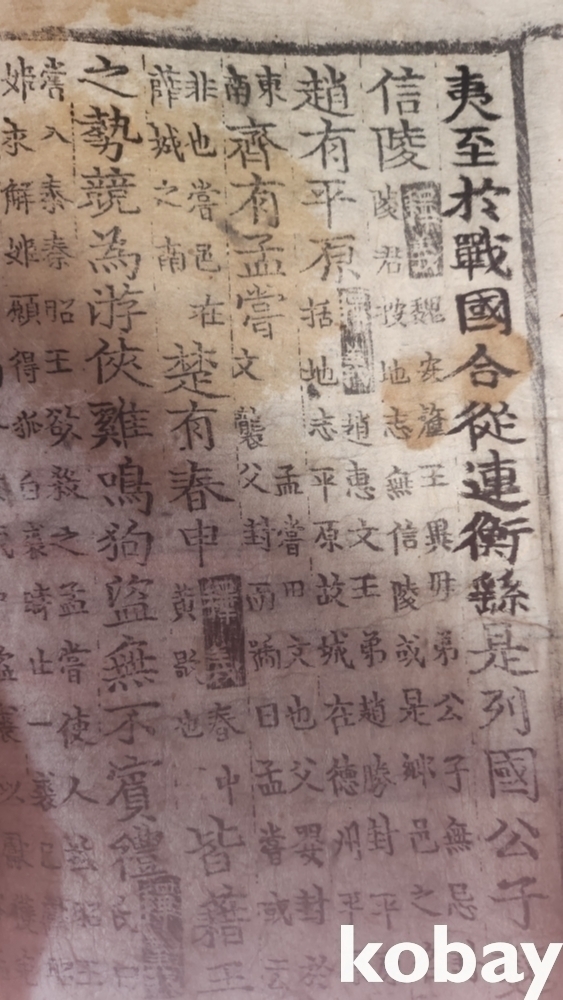 夷至於戰國合從連衡繇是列國公子
信陵釋義魏安釐王異母弟公子無忌
陵君按地志無信陵或是鄉邑之
趙有平原釋義趙惠文王弟趙勝封平
括地志平原故城在德州平
東南齊有孟嘗孟嘗田文也父嬰封於
文襲父封而號曰孟嘗或云
非也嘗邑在
薛城之南
楚有春申釋義春申
黃歇也
皆藉王
之勢競為游俠雞鳴狗盜無不賓禮釋義
嘗入秦秦昭王欲殺之孟嘗使人
姬求解姬願得狐白裘時止一裘已
kobay